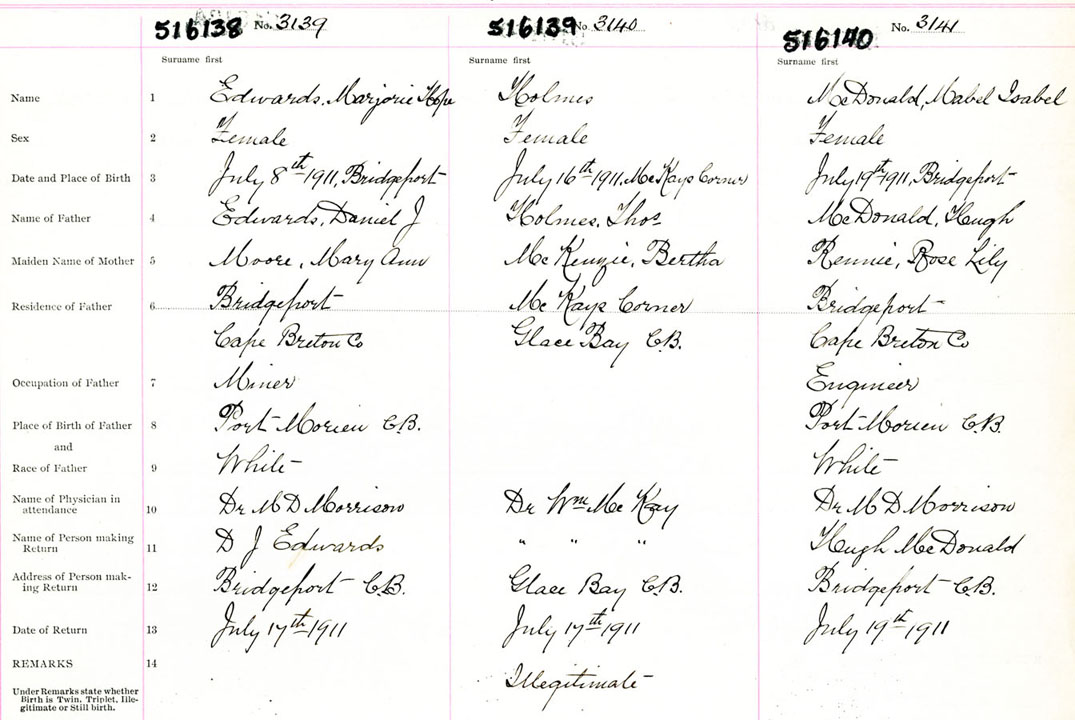 516138 No. 3139 516139 No. 3140 516140 No. 3141
Surname first Surname first Surname first
Name 1 Edwards, Marjorie Hope Holmes McDonald, Mabel Isabel
Sex 2 Female Female Female
Date and Place of Birth 3 July 8th 1911, Bridgeport July 16th 1911, McKays Corner July 19th 1911, Bridgeport
Name of Father 4 Edwards, Daniel J Holmes, Thos McDonald, Hugh
Maiden Name of Mother 5 Moore, Mary Ann McKenzie, Bertha Rennie, Rose Lily
Residence of Father 6 Bridgeport McKays Corner Bridgeport
Cape Breton Co Glace Bay C.B. Cape Breton Co
Occupation of Father 7 Miner Engineer
Place of Birth of Father 8 Port Morien C.B. Port Morien C.B.
and
Race of Father 9 White White
Name of Physician in
attendance 10 Dr M D Morrison Dr Wm McKay Dr M D Morrison
Name of Person making
Return 11 D J Edwards " " " Hugh McDonald
Address of Person mak-
ing Return 12 Bridgeport C.B. Glace Bay C.B. Bridgeport C.B.
Date of Return 13 July 17th 1911 July 17th 1911 July 19th 1911
REMARKS 14
Illegitimate
Under Remarks state whether
Birth is Twin, Triplet, Ille-
gitimate or Still birth.